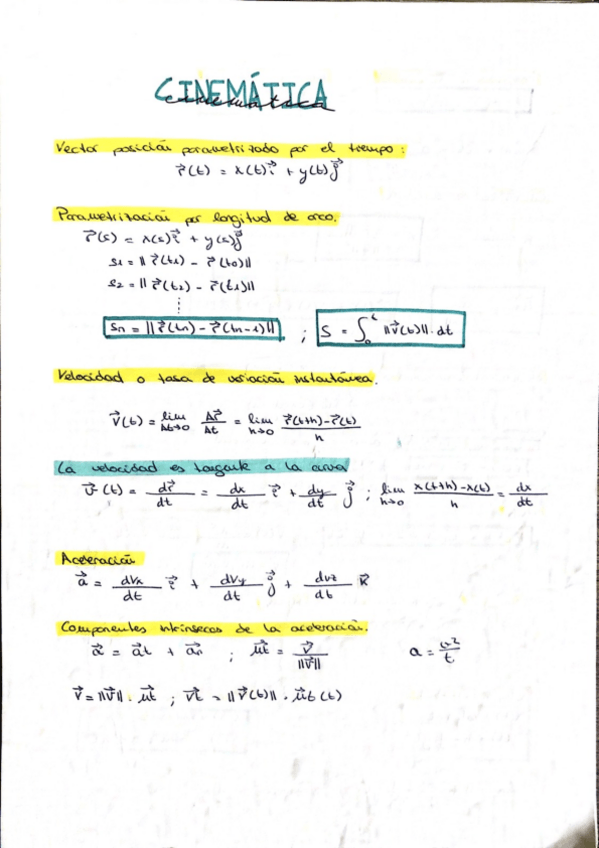 CINEMÁTICA
cinemática
Vector posición parametrizado por el tiempo:
r⃗(t) = x(t)i⃗ + y(t)j⃗
Parametrización por longitud de arco.
r⃗(s) = x(s)i⃗ + y(s)j⃗
s1 = ||r⃗(t1) - r⃗(t0)||
s2 = ||r⃗(t2) - r⃗(t1)||
⋮
sn = ||r⃗(tn) - r⃗(tn-1)|| ; S = ∫₀ᵗ ||v⃗(t)||·dt
Velocidad o tasa de variación instantánea.
v⃗(t) = lim Δt→0 Δr⃗/Δt = lim h→0 (r⃗(t+h)-r⃗(t))/h
La velocidad es tangente a la curva
v⃗(t) = dr⃗/dt = dx/dt i⃗ + dy/dt j⃗ ; lim h→0 (x(t+h)-x(t))/h = dx/dt
Aceleración
a⃗ = dvx/dt i⃗ + dvy/dt j⃗ + dvz/dt k⃗
Componentes intrínsecas de la aceleración.
a⃗ = a⃗t + a⃗n ; u⃗t = v⃗/||v⃗|| a = v²/t
v⃗ = ||v⃗||·u⃗t ; v⃗t = ||v⃗(t)||·u⃗t(t)